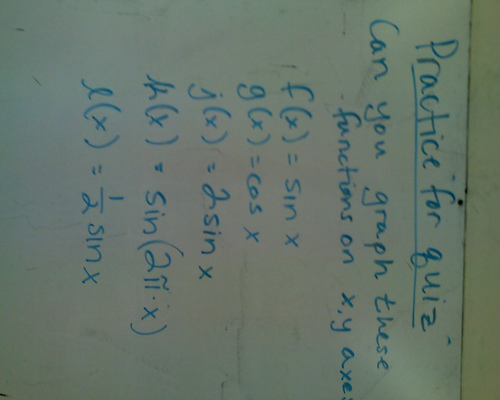 Practice for quiz
Can you graph these
functions on x,y axes
f(x) = sin x
g(x) = cos x
j(x) = 2 sin x
k(x) = sin(2π·x)
l(x) = 1/2 sin x